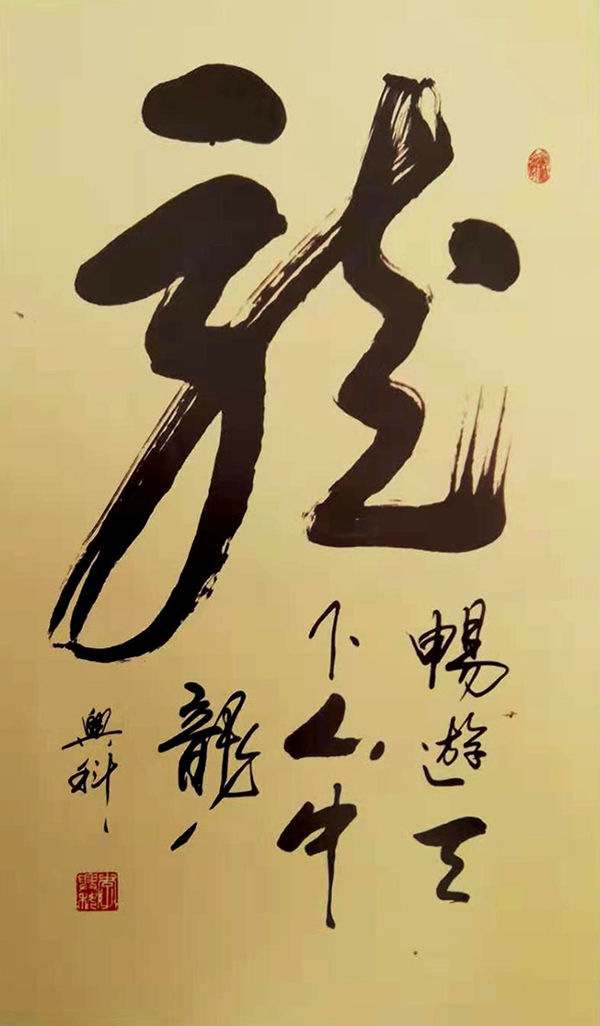 龍
暢遊天
下人中
龍
興科